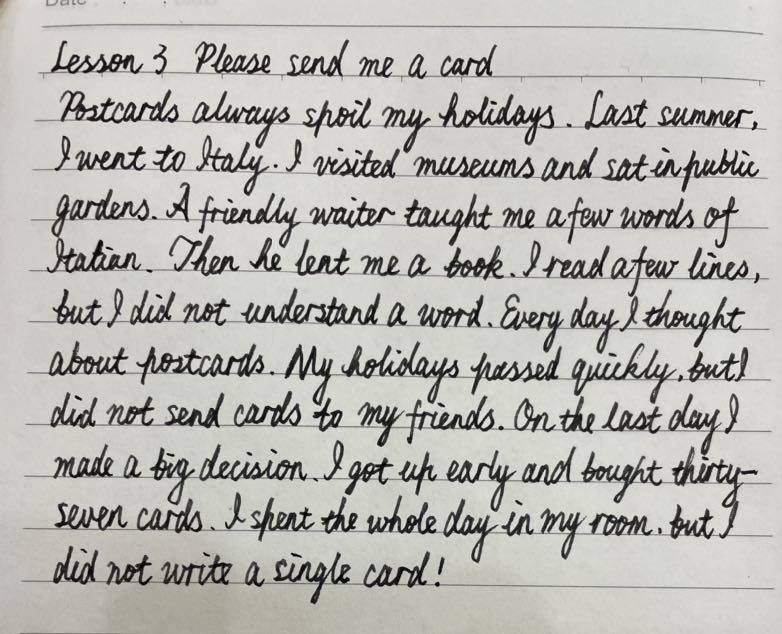 Date
Lesson 3 Please send me a card
Postcards always spoil my holidays. Last summer,
I went to Italy. I visited museums and sat in public
gardens. A friendly waiter taught me a few words of
Italian. Then he lent me a book. I read a few lines,
but I did not understand a word. Every day I thought
about postcards. My holidays passed quickly, but I
did not send cards to my friends. On the last day I
made a big decision. I got up early and bought thirty-
seven cards. I spent the whole day in my room. but I
did not write a single card!